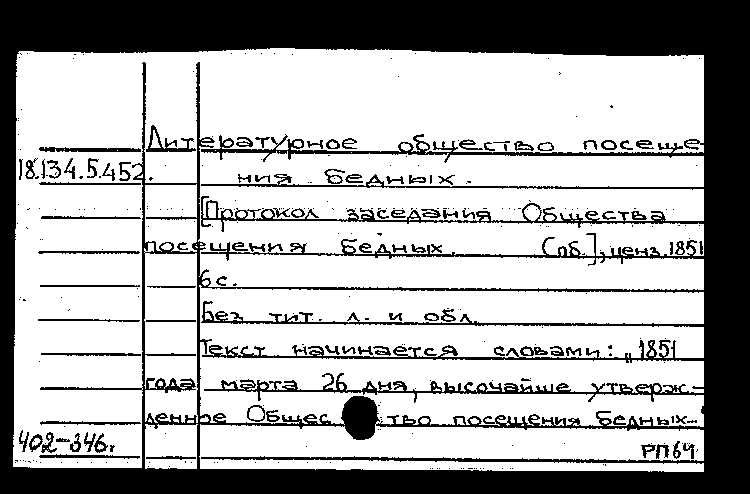 Литературное общество посеще-
18.134.5.452. ния бедных.
[Протокол заседания Общества
посещения бедных. Спб.], ценз. 1851
6 с.
Без тит. л. и обл.
Текст начинается словами: „1851
года марта 26 дня, высочайше утверж-
денное Общество посещения бедных..."
402-346. РП64